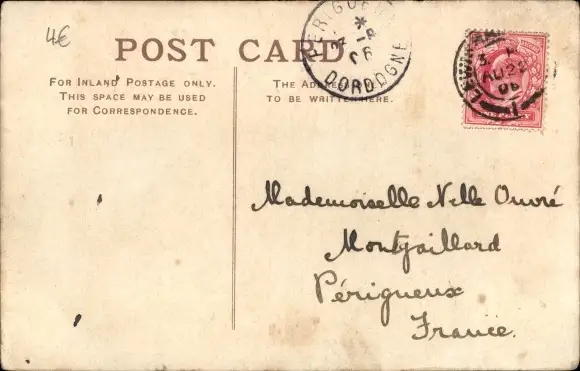 4€
POST CARD.
FOR INLAND POSTAGE ONLY.
THIS SPACE MAY BE USED
FOR CORRESPONDENCE.
THE ADDRESS
TO BE WRITTEN HERE.
PERIGUEUX
DORDOGNE
AU 29
06
Mademoiselle Nelle Ouvré
Montjaillard
Périgueux
France.